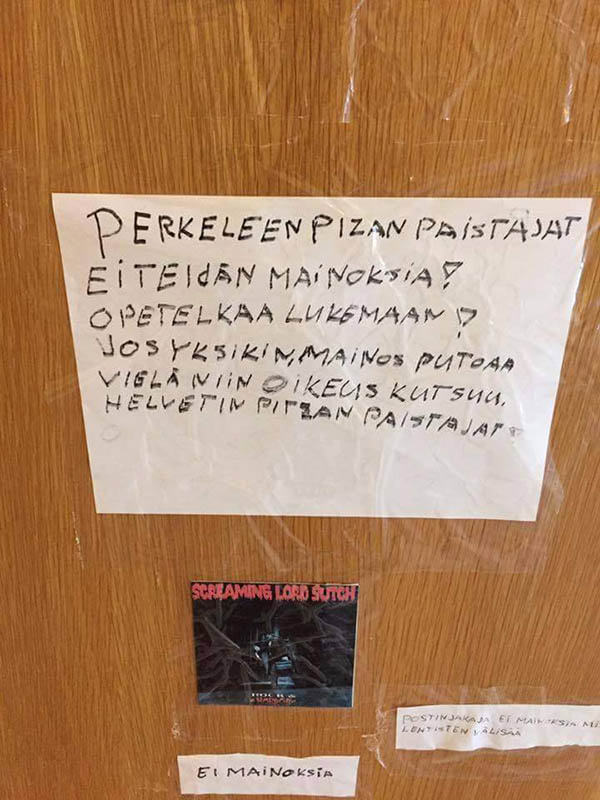 PERKELEEN PIZAN PAISTAJAT
EI TEIDÄN MAINOKSIA!
OPETELKAA LUKEMAAN !
JOS YKSIKIN, MAINOS PUTOAA
VIELÄ NIIN OIKEUS KUTSUU.
HELVETIN PITZAN PAISTAJAT!
SCREAMING LORD SUTCH
ROCK &
HORROR
EI MAINOKSIA
POSTINJAKAJA EI MAINOKSIA
LEHTISTEN VÄLISSÄ